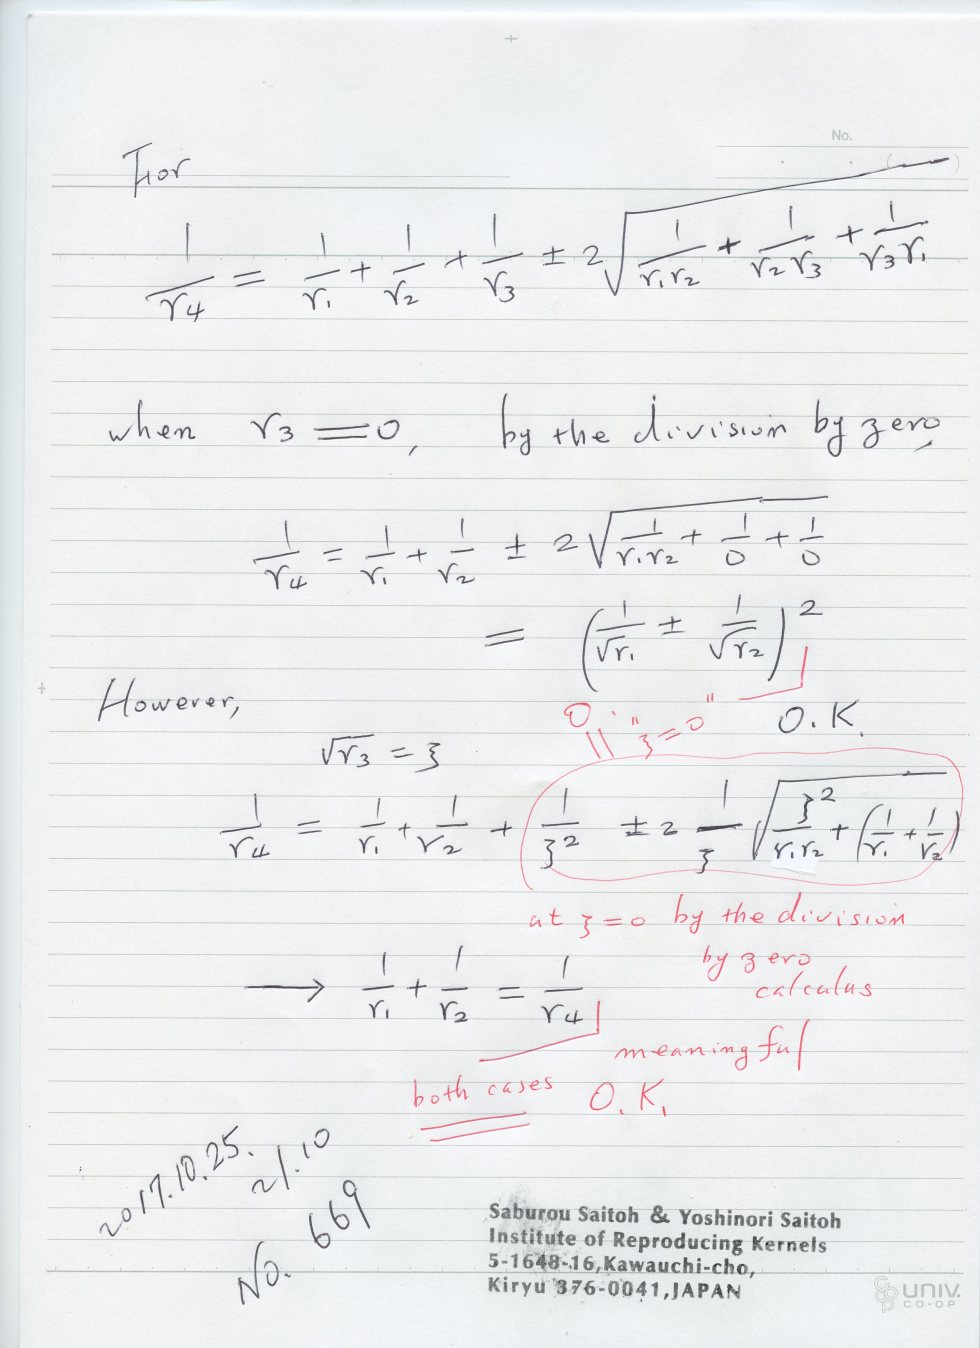 No.
( )
For
1/r4 = 1/r1 + 1/r2 + 1/r3 ± 2√(1/(r1r2) + 1/(r2r3) + 1/(r3r1))
when r3 = 0, by the division by zero,
1/r4 = 1/r1 + 1/r2 ± 2√(1/(r1r2) + 1/0 + 1/0)
= (1/√r1 ± 1/√r2)²
However, 0 "ξ=0" O.K.
||
√r3 = ξ
1/r4 = 1/r1 + 1/r2 + 1/ξ² ± 2 1/ξ √(ξ²/(r1r2) + (1/r1 + 1/r2))
at ξ=0 by the division
by zero
calculus
→ 1/r1 + 1/r2 = 1/r4
meaningful
both cases O.K.
2017.10.25.
21.10
No. 669
Saburou Saitoh & Yoshinori Saitoh
Institute of Reproducing Kernels
5-1648-16,Kawauchi-cho,
Kiryu 376-0041,JAPAN
UNIV.
CO-OP